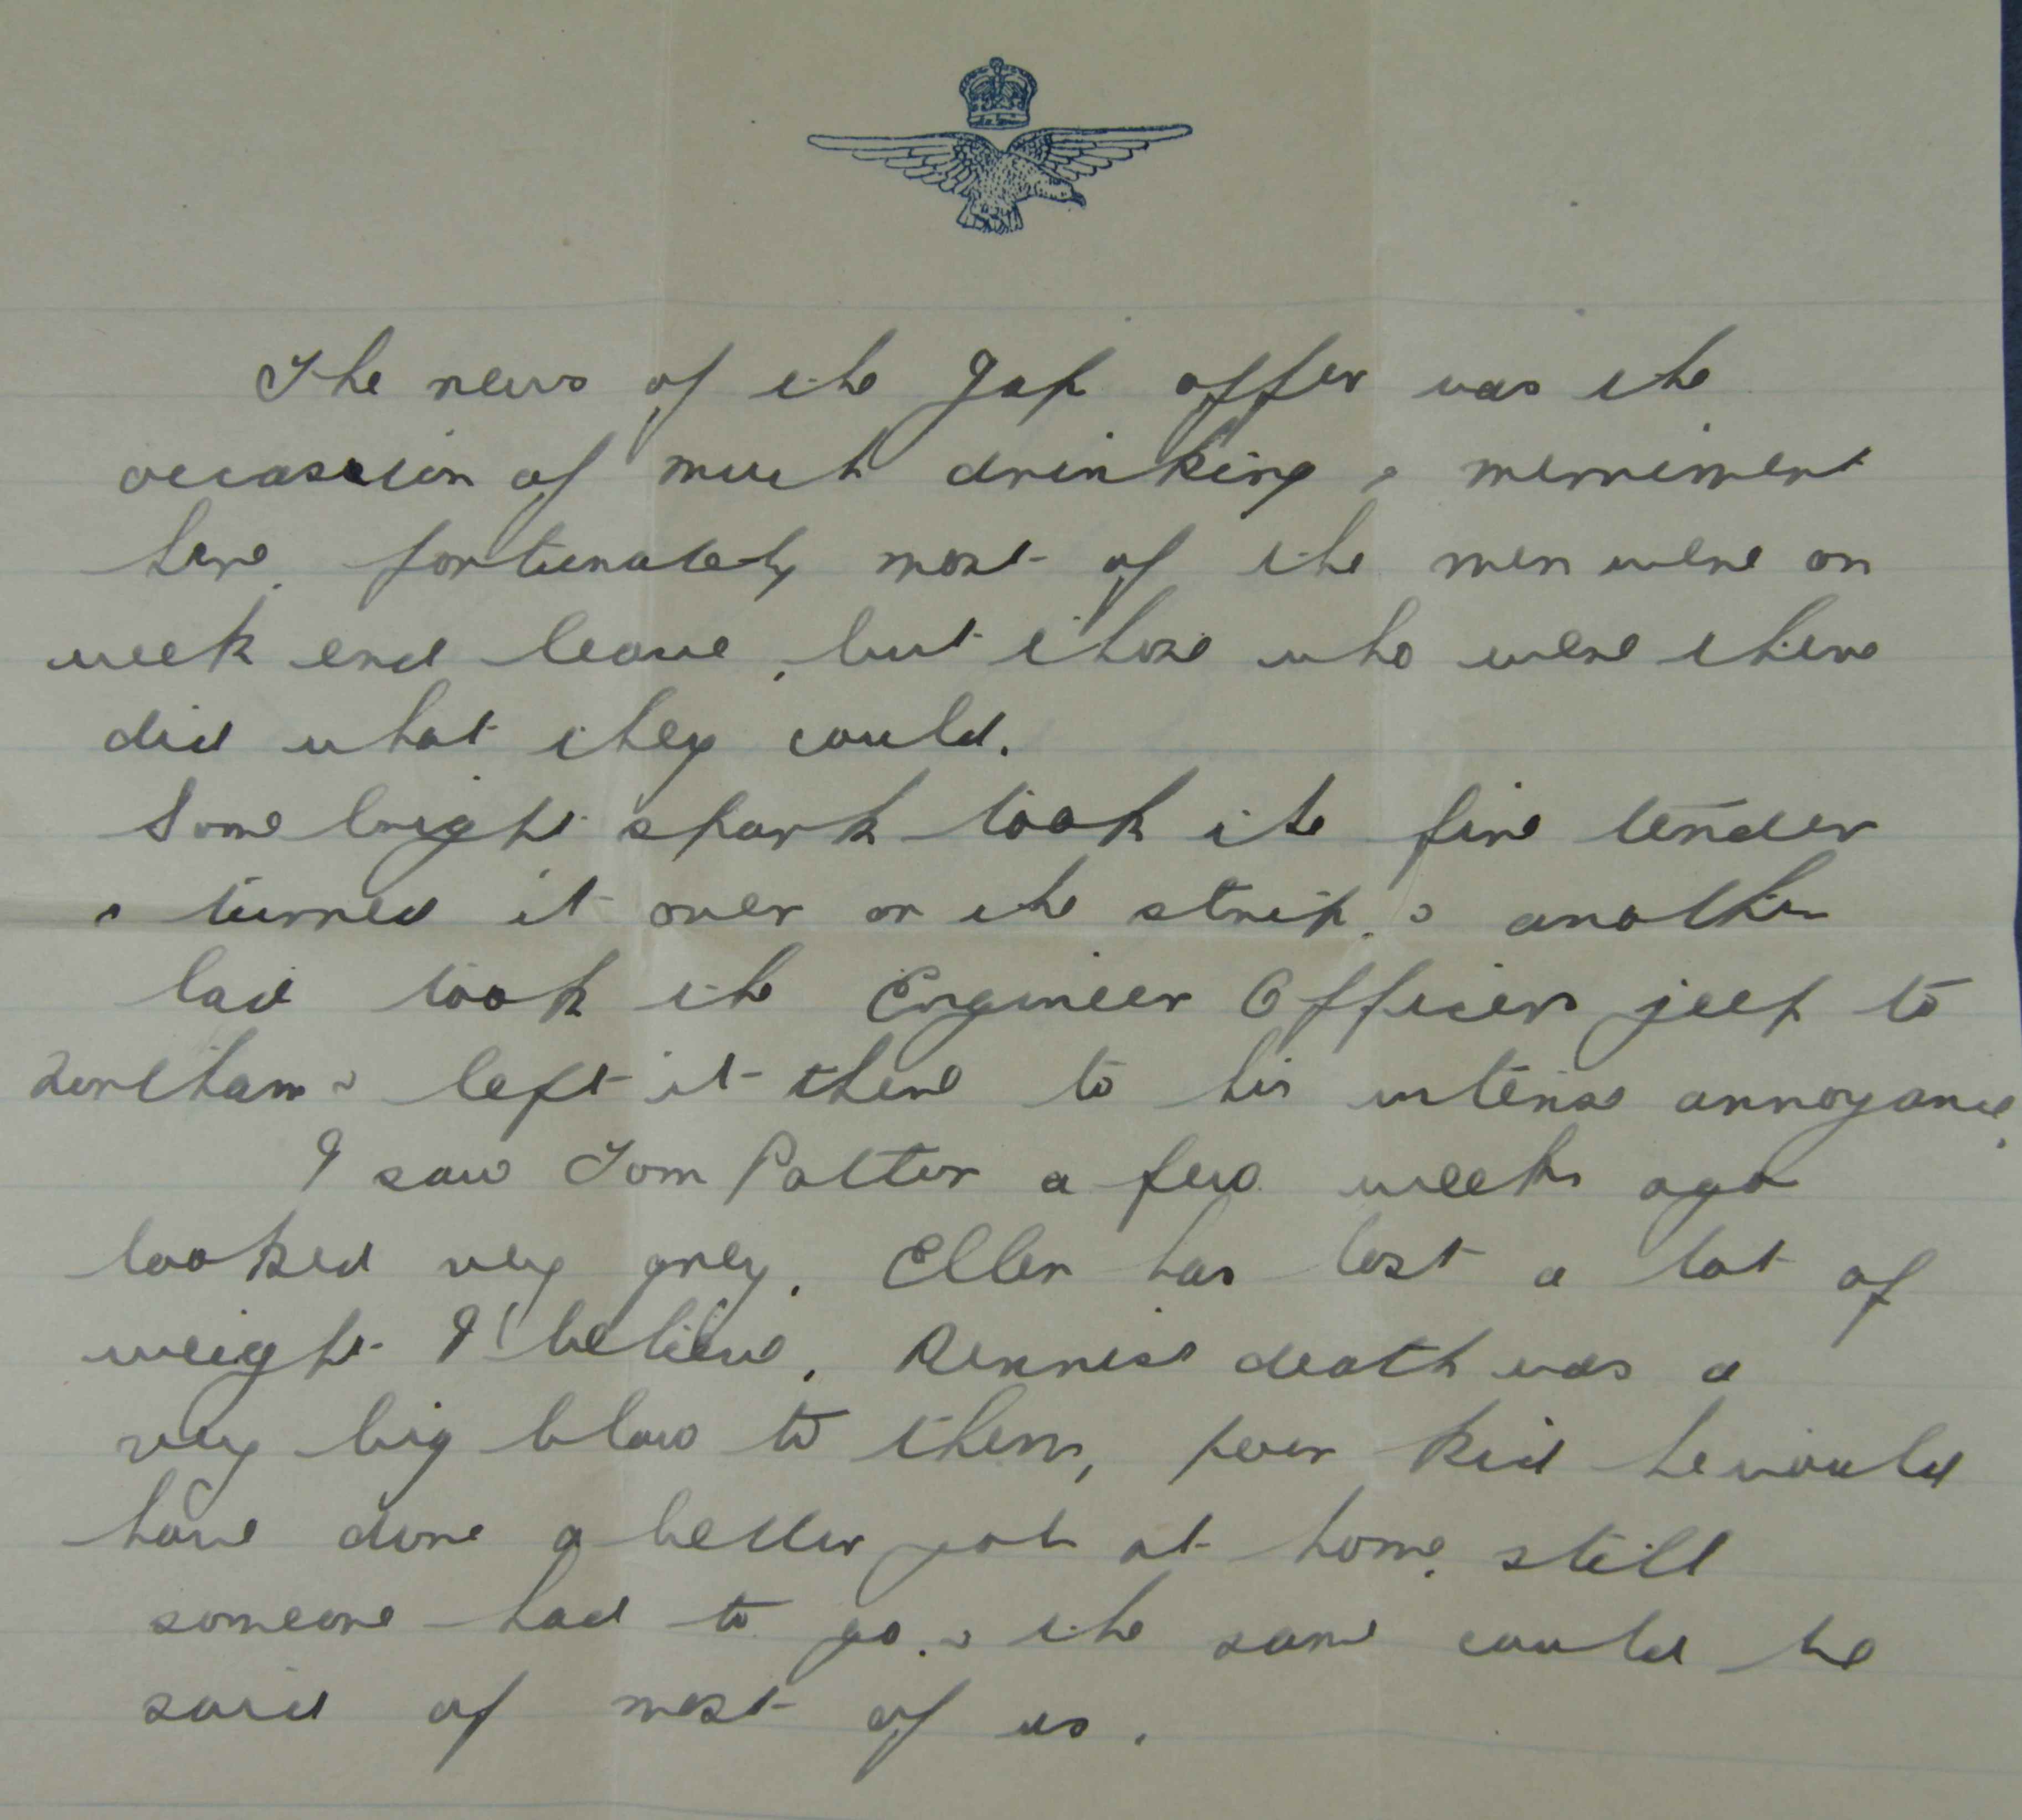 The news of the Jap offer was the
occassion of much drinking & merriment
here, fortunately most of the men were on
week end leave, but those who were there
did what they could.
Some bright spark took the fire tender
& turned it over on the strip, & another
lad took the Engineer Officers jeep to
& left it there to his intense annoyance.
I saw Tom Potter a few weeks ago
looked very grey. Ellen has lost a lot of
weight I believe. Dennis death was a
very big blow to them, poor kid he would
have done a better job at home, still
someone had to go. & the same could be
said of most of us.